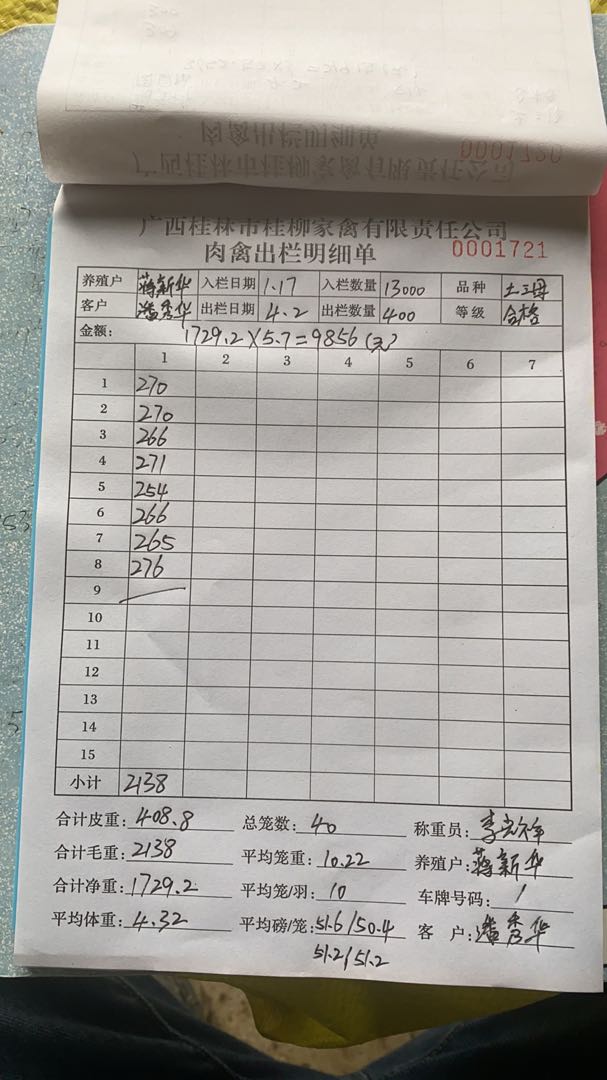 肉禽出栏明细单
0001720
广西桂林市桂柳家禽有限责任公司
广西桂林市桂柳家禽有限责任公司
肉禽出栏明细单 0001721
养殖户 蒋新华 入栏日期 1.17 入栏数量 13000 品种 土三母
客户 潘秀华 出栏日期 4.2 出栏数量 400 等级 合格
金额: 1729.2×5.7=9856(元)
1 2 3 4 5 6 7
1 270
2 270
3 266
4 271
5 254
6 266
7 265
8 276
9
10
11
12
13
14
15
小计 2138
合计皮重: 408.8 总笼数: 40 称重员: 李
合计毛重: 2138 平均笼重: 10.22 养殖户: 蒋新华
合计净重: 1729.2 平均笼/羽: 10 车牌号码: 1
平均体重: 4.32 平均磅/笼: 51.6/50.4 客户: 潘秀华
51.2/51.2